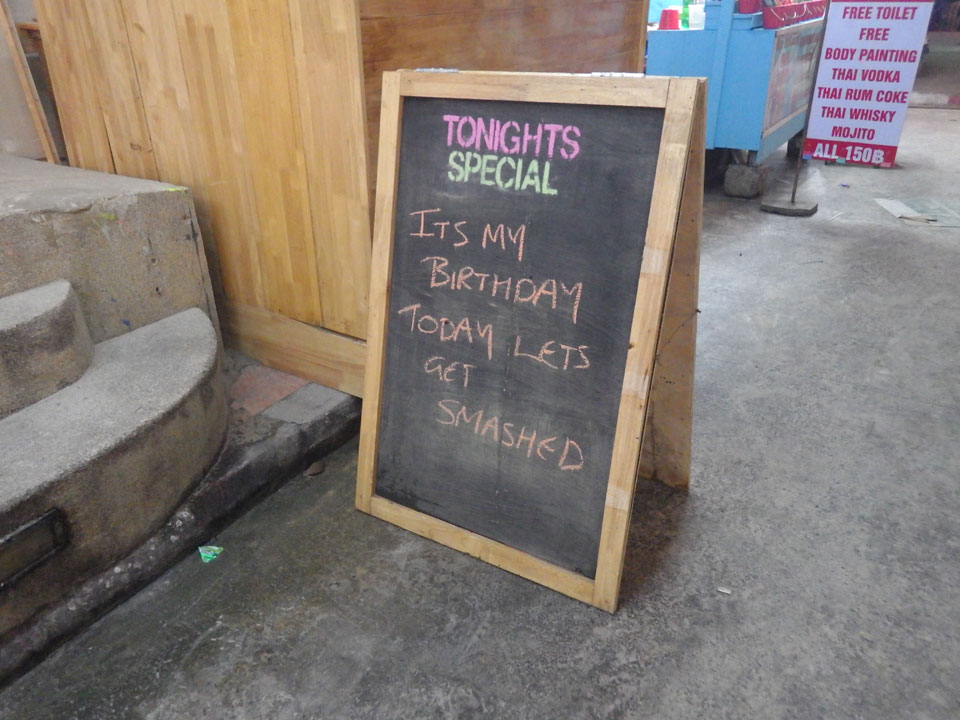 TONIGHTS
SPECIAL
ITS MY
BIRTHDAY
TODAY LETS
GET
SMASHED
FREE TOILET
FREE
BODY PAINTING
THAI VODKA
THAI RUM COKE
THAI WHISKY
MOJITO
ALL 150฿